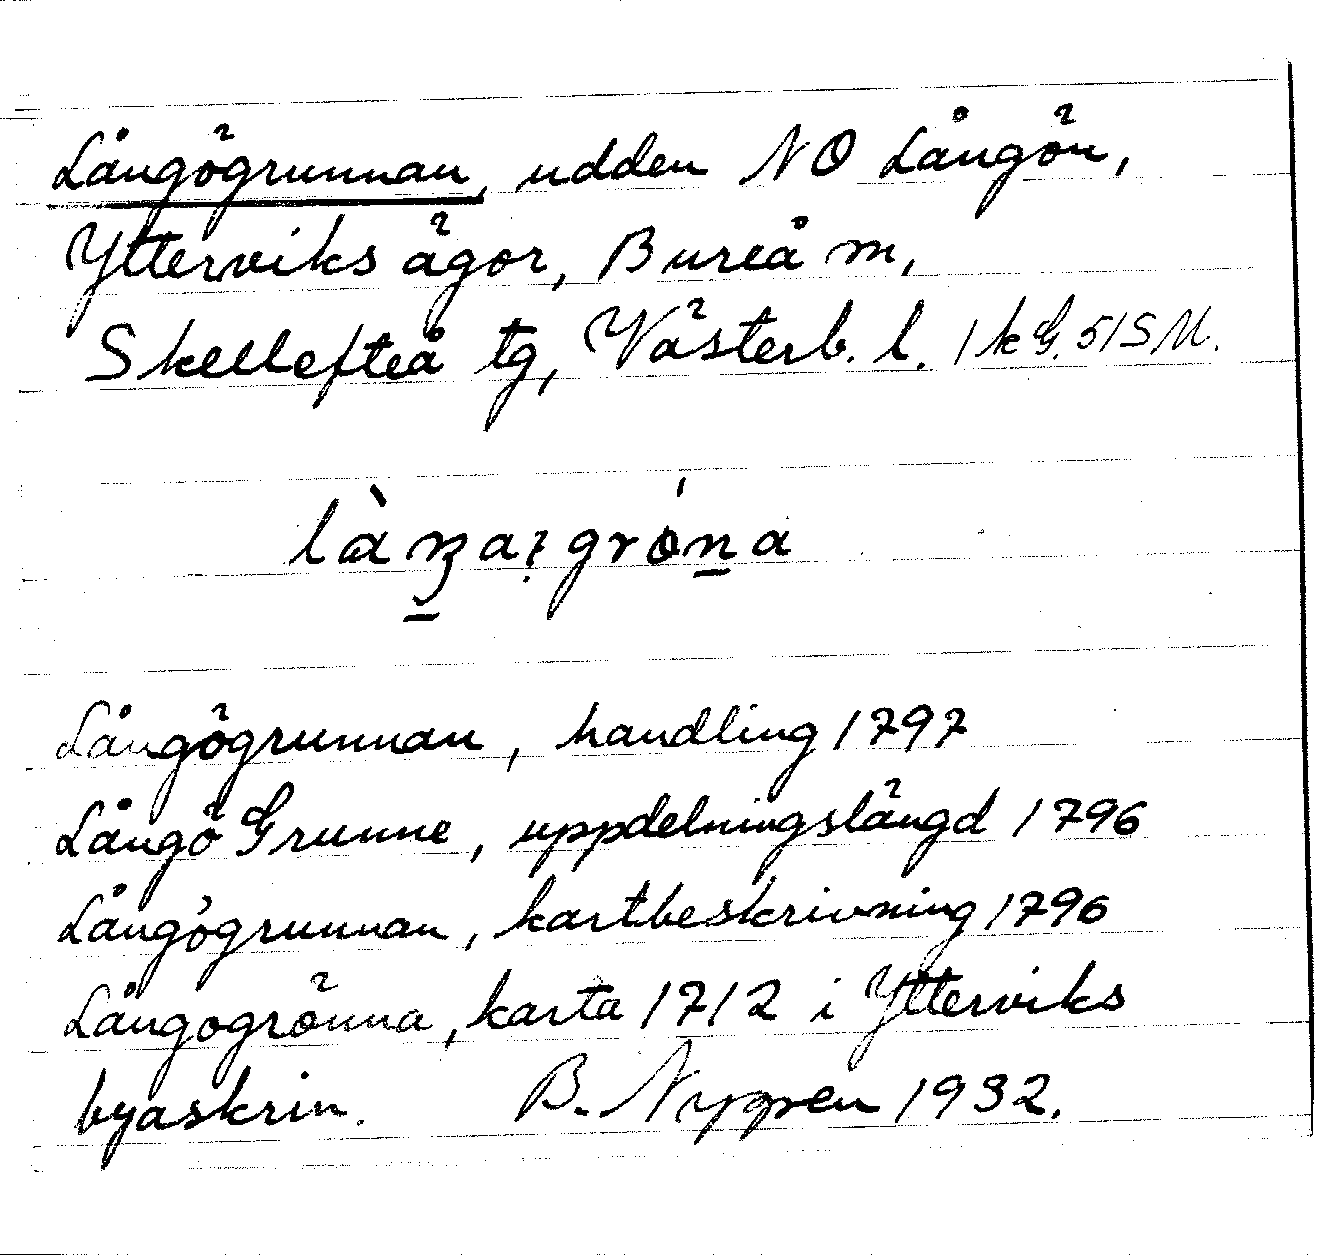 Långögrunnan, udden NO Långön,
Ytterviks ägor, Bureå m,
Skellefteå tg, Västerb. l. 1 kG. 51SM.
Långögrunnan, handling 1797
Långö Grunne, uppdelningslängd 1796
Långögrunnan, kartbeskrivning 1796
Långogrönna, karta 1712 i Ytterviks
byaskrin. B. Nygren 1932.